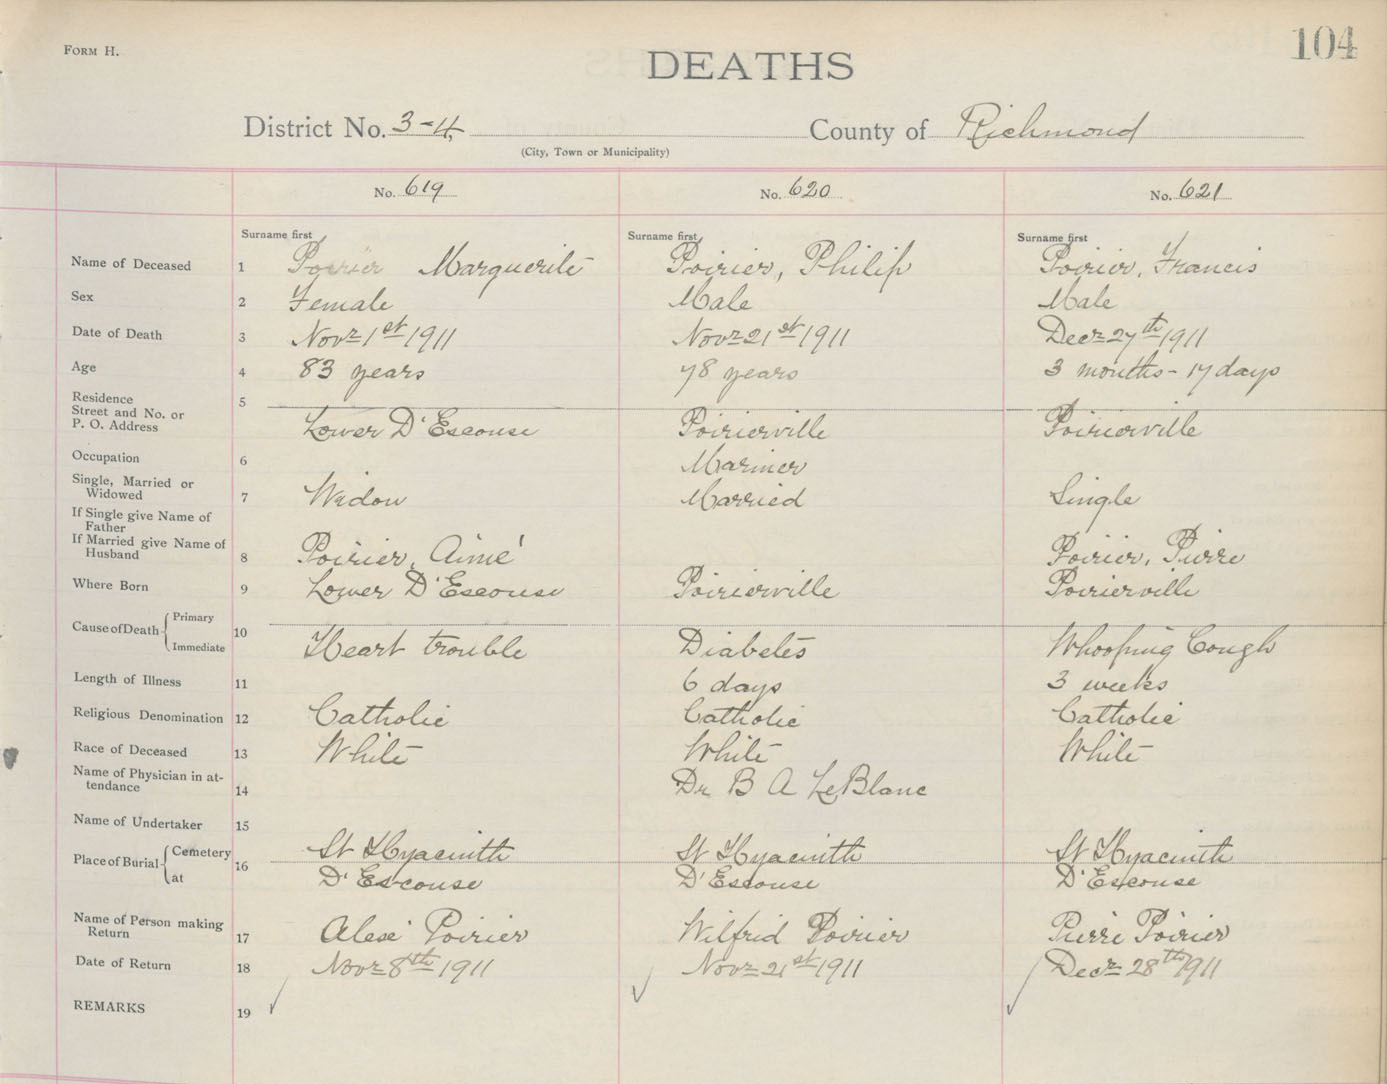 Form H.
104
DEATHS
District No. 3-4, County of Richmond
(City, Town or Municipality)
No. 619 No. 620 No. 621
Surname first Surname first Surname first
Name of Deceased 1 Poirier Marguerite Poirier, Philip Poirier, Francis
Sex 2 Female Male Male
Date of Death 3 Novr 1st 1911 Novr 21st 1911 Decr 27th 1911
Age 4 83 years 78 years 3 months - 17 days
Residence 5
Street and No. or
P. O. Address Lower D'Escouse Poirierville Poirierville
Occupation 6 Mariner
Single, Married or
Widowed 7 Widow Married Single
If Single give Name of
Father
If Married give Name of
Husband 8 Poirier, Aimé Poirier, Pierre
Where Born 9 Lower D'Escouse Poirierville Poirierville
Cause of Death Primary
Immediate 10 Heart trouble Diabetes Whooping Cough
Length of Illness 11 6 days 3 weeks
Religious Denomination 12 Catholic Catholic Catholic
Race of Deceased 13 White White White
Name of Physician in at-
tendance 14 Dr B A LeBlanc
Name of Undertaker 15
Place of Burial Cemetery 16 St Hyacinth St Hyacinth St Hyacinth
at D'Escouse D'Escouse D'Escouse
Name of Person making
Return 17 Poirier Wilfrid Poirier Pierre Poirier
Date of Return 18 Novr 8th 1911 Novr 21st 1911 Decr 28th 1911
REMARKS 19